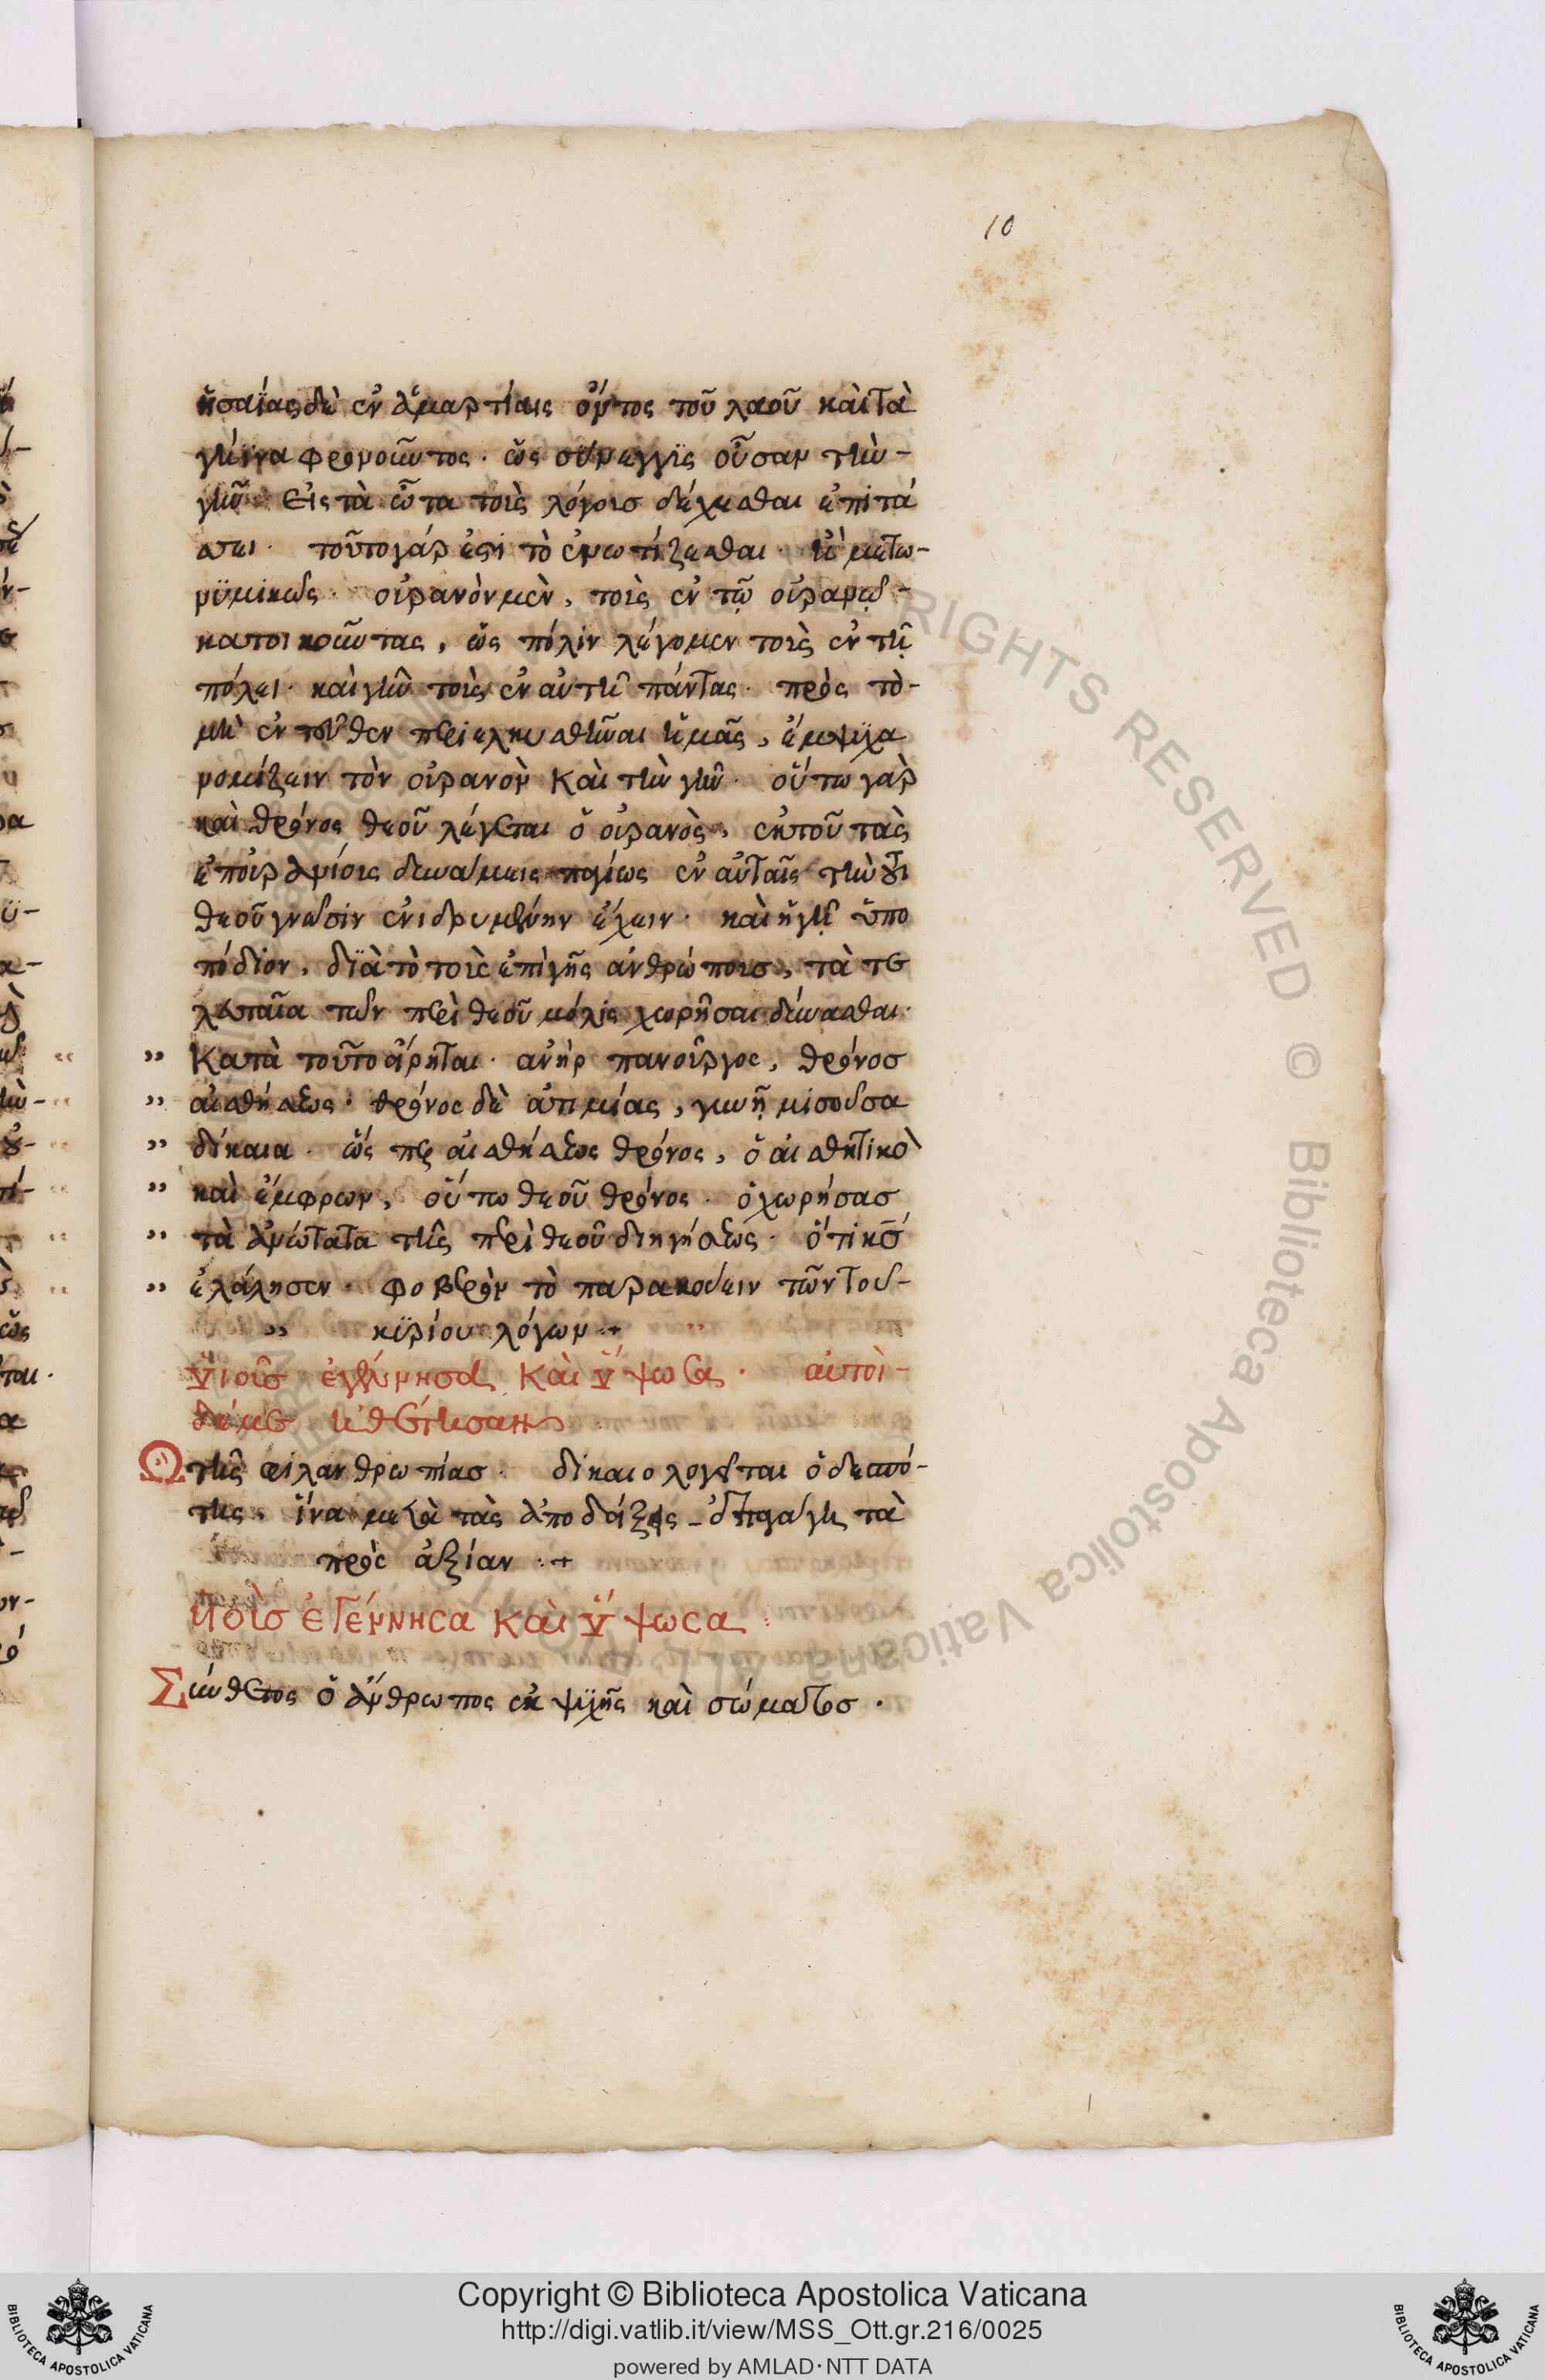 10
ἡσαΐας δὲ ἐν ἁμαρτίαις ὄντος τοῦ λαοῦ καὶ τὰ
γήϊνα φρονοῦντος· ὡς σύνεγγϋς οὖσαν τὴν-
γῆν εἰς τὰ ὦτα τοὺς λόγους δέχεσθαι ἐπιτά
σσει· τοῦτο γάρ ἐστι τὸ ἐνωτίζεσθαι· ἢ μετω-
νϋμικῶς· οὐρανὸν μὲν, τοὺς ἐν τῷ οὐρανῷ-
κατοικοῦντας, ὡς πόλιν λέγομεν τοὺς ἐν τῇ
πόλει· καὶ γῆν τοὺς ἐν αὐτῇ πάντας· πρὸς τὸ-
μὴ ἐντεῦθεν περιελκυσθῆναι ἡμᾶς, ἔμψϋχα
νομίζειν τὸν οὐρανὸν καὶ τὴν γῆν· οὕτω γὰρ
καὶ θρόνος θεοῦ λέγεται ὁ οὐρανὸς, ἐκ τοῦ τὰς
ἐπουρανίους δυνάμεις παγίως ἐν αὐταῖς τὴν τοῦ
θεοῦ γνῶσιν ἐνιδρυμένην ἔχειν· καὶ ἡ γῆ ὑπο
πόδιον, διὰ τὸ τοῖς ἐπὶ γῆς ἀνθρώποις, τὰ τε
λευταῖα τῶν περὶ θεοῦ μόλις χωρῆσαι δύνασθαι·
" Κατὰ τοῦτο εἴρηται· ἀνὴρ πανοῦργος, θρόνος
" αἰσθήσεως· θρόνος δὲ ἀτιμίας, γυνὴ μισοῦσα
" δίκαια· ὥς περ αἰσθήσεως θρόνος, ὁ αἰσθητικὸ
" καὶ ἔμφρων, οὕτω θεοῦ θρόνος· ὁ χωρήσας
" τὰ ἀνώτατα τῆς περὶ θεοῦ διηγήσεως· ὅτι κς
" ἐλάλησεν· φοβερὸν τὸ παρακούειν τῶν τοῦ-
" κϋρίου λόγων :+
Υἱοὺς ἐγέννησα καὶ ὕψωσα· αὐτοὶ-
δέ με ἠθέτησαν
Ὢ τῆς φιλανθρωπίας· δικαιολογεῖται ὁ δεσπό-
της· ἵνα μετὰ τὰς ἀποδείξεις ἐπαγάγῃ τὰ
πρὸς ἀξίαν :+
Υἱοὺς ἐγέννησα καὶ ὕψωσα :
Σύνθετος ὁ ἄνθρωπος ἐκ ψϋχῆς καὶ σώματος·
ALL RIGHTS RESERVED © Biblioteca Apostolica Vaticana
BIBLIOTECA APOSTOLICA VATICANA
Copyright © Biblioteca Apostolica Vaticana
http://digi.vatlib.it/view/MSS_Ott.gr.216/0025
powered by AMLAD·NTT DATA
BIBLIOTECA APOSTOLICA VATICANA